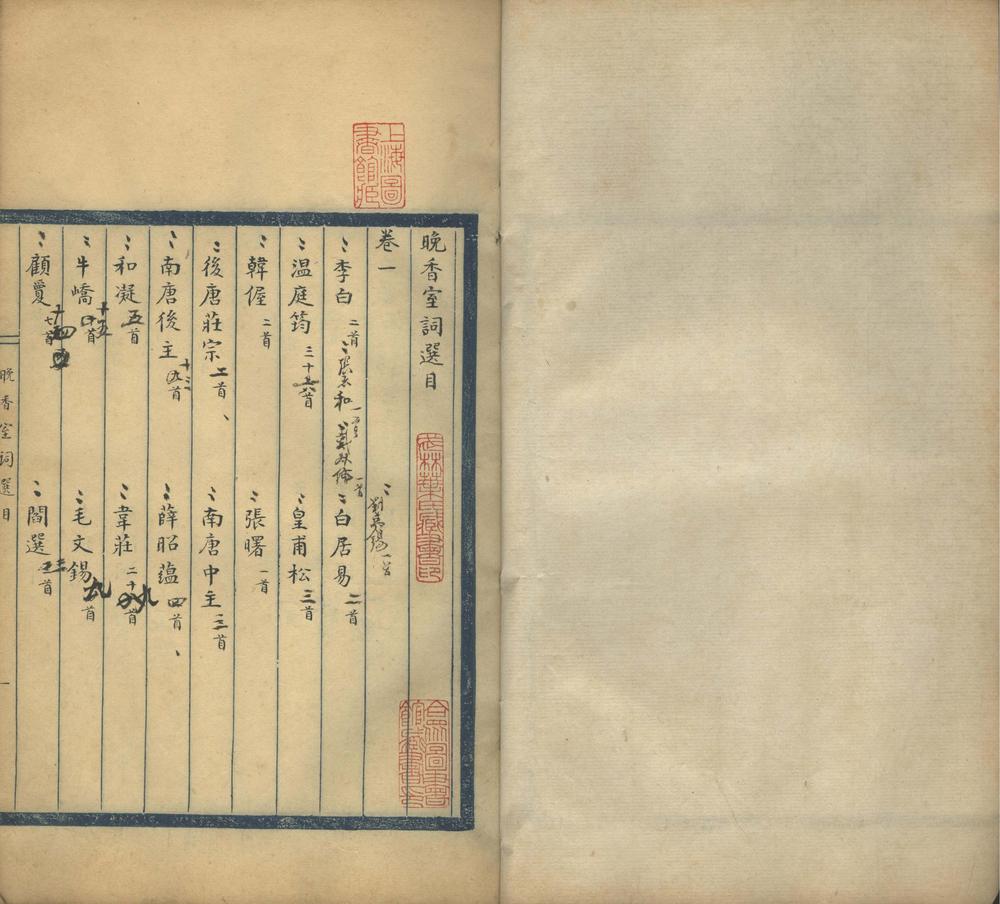 晚香室詞選目
卷一
劉禹錫一首
李白二首 張志和一首 戴叔倫一首 白居易二首
温庭筠三十六首 皇甫松三首
韓偓二首 張曙一首
後唐莊宗二首 南唐中主三首
南唐後主十三首 薛昭蘊四首
和凝五首 韋莊二十九首
牛嶠十五首 毛文錫九首
顧敻首 閻選三首
晚香室詞選目
一
上海圖書館臧
武林葉氏藏書印
合眾圖書館藏書印